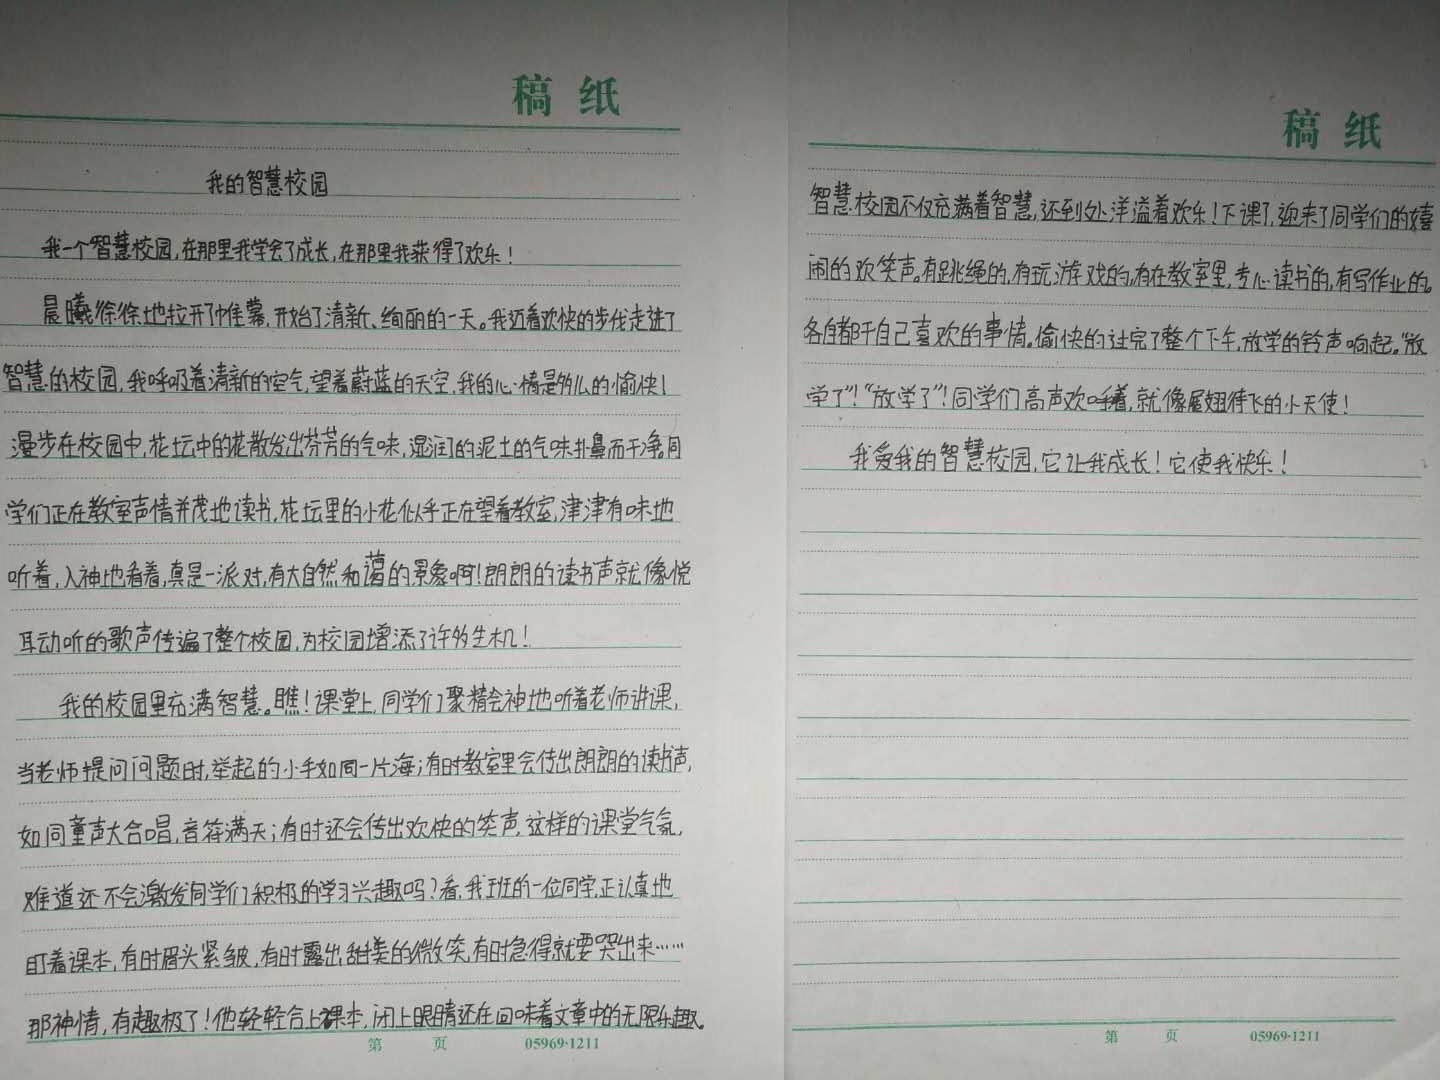 稿 纸
我的智慧校园
我一个智慧校园,在那里我学会了成长,在那里我获得了欢乐!
晨曦徐徐地拉开了帷幕,开始了清新、绚丽的一天。我迈着欢快的步伐走进了
智慧的校园,我呼吸着清新的空气,望着蔚蓝的天空,我的心情是多么的愉快!
漫步在校园中,花坛中的花散发出芬芳的气味,湿润的泥土的气味扑鼻而干净。同
学们正在教室声情并茂地读书,花坛里的小花似乎正在望着教室,津津有味地
听着,入神地看着,真是一派对,有大自然和蔼的景象啊!朗朗的读书声就像悦
耳动听的歌声传遍了整个校园,为校园增添了许多生机!
我的校园里充满智慧。瞧!课堂上,同学们聚精会神地听着老师讲课,
当老师提问问题时,举起的小手如同一片海;有时教室里会传出朗朗的读书声,
如同童声大合唱,音符满天;有时还会传出欢快的笑声,这样的课堂气氛,
难道还不会激发同学们积极的学习兴趣吗?看,我班的一位同学,正认真地
盯着课本,有时眉头紧皱,有时露出甜美的微笑,有时急得就要哭出来……
那神情,有趣极了!他轻轻合上课本,闭上眼睛还在回味着文章中的无限乐趣。
第 页 05969·1211
稿 纸
智慧校园不仅充满着智慧,还到处洋溢着欢乐!下课了,迎来了同学们的嬉
闹的欢笑声。有跳绳的,有玩游戏的,有在教室里,专心读书的,有写作业的。
各自都干自己喜欢的事情。愉快的过完了整个下午,放学的铃声响起。“放
学了”!“放学了”!同学们高声欢呼着,就像展翅待飞的小天使!
我爱我的智慧校园,它让我成长!它使我快乐!
第 页 05969·1211